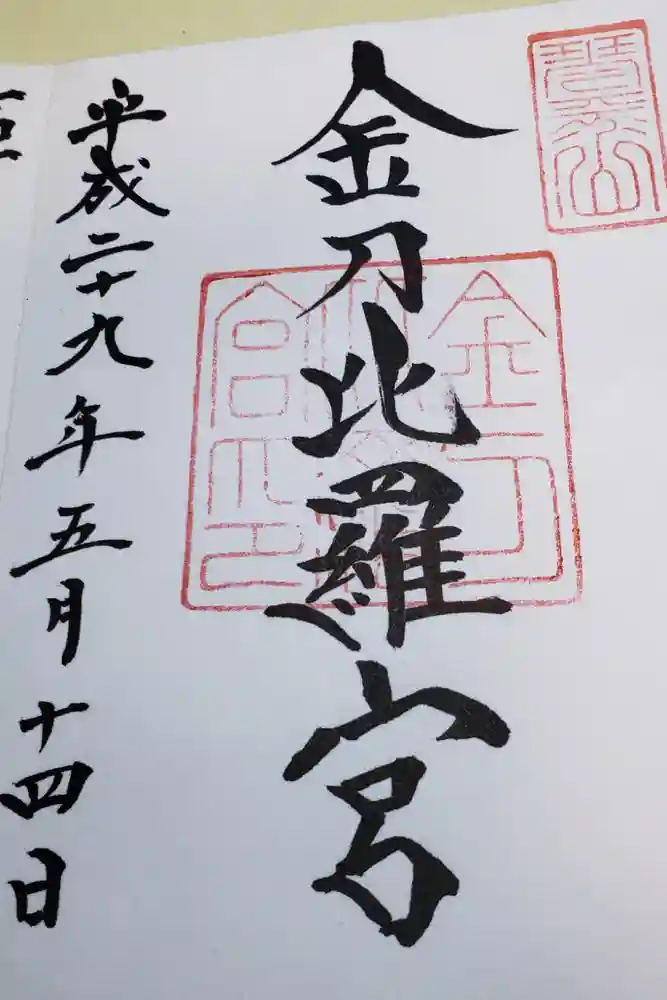 琴平山
金刀比羅宮
金刀比羅宮印
平成二十九年五月十四日